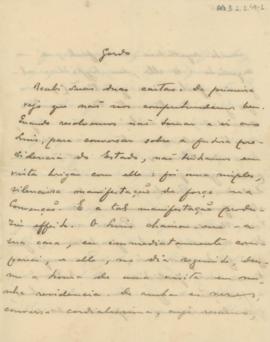 Gordo
Recebi suas duas cartas. Da primeira
vejo que não nos comprehendemos bem.
Quando resolvemos não tornar a ir ao
Luis, para conversar sobre a futura pre-
sidencia do Estado, não tinhamos em
vista brigar com elle: foi uma simples,
silenciosa manifestação de força na
Convenção. E a tal manifestação produ-
ziu effeito. O Luis chamou-me a
sua casa, eu immediatamente com-
pareci, e elle, no dia seguinte, deu-
me a honra de uma visita em mi-
nha residencia. De ambas as vezes,
conversa cordialissima, cujo resumo,